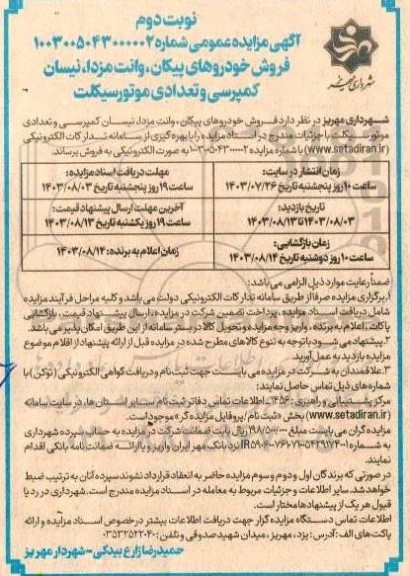 نوبت دوم
آگهی مزایده عمومی شماره ۱۰۰۳۰۰۵۰۴۳۰۰۰۰۰۲
فروش خودروهای پیکان، وانت مزدا، نیسان
کمپرسی و تعدادی موتورسیکلت
شهرداری مهریز
شهرداری مهریز در نظر دارد فروش خودروهای پیکان، وانت مزدا، نیسان کمپرسی و تعدادی
موتورسیکلت با جزئیات مندرج در اسناد مزایده را با بهره گیری از سامانه تدارکات الکترونیکی
(www.setadiran.ir) با شماره مزایده ۱۰۰۳۰۰۵۰۴۳۰۰۰۰۰۲ به صورت الکترونیکی به فروش برساند.
زمان انتشار در سایت:
ساعت ۱۰ روز پنجشنبه تاریخ ۱۴۰۳/۰۷/۲۶
مهلت دریافت اسناد مزایده:
ساعت ۱۹ روز پنجشنبه تاریخ ۱۴۰۳/۰۸/۰۳
تاریخ بازدید:
۱۴۰۳/۰۸/۰۳ تا ۱۴۰۳/۰۸/۱۳
آخرین مهلت ارسال پیشنهاد قیمت:
ساعت ۱۹ روز یکشنبه تاریخ ۱۴۰۳/۰۸/۱۳
زمان بازگشایی:
ساعت ۱۰ روز دوشنبه تاریخ ۱۴۰۳/۰۸/۱۴
زمان اعلام به برنده: ۱۴۰۳/۰۸/۱۴
ضمناً رعایت موارد ذیل الزامی می باشد:
۱. برگزاری مزایده صرفا از طریق سامانه تدارکات الکترونیکی دولت می باشد و کلیه مراحل فرآیند مزایده
شامل دریافت اسناد مزایده، پرداخت تضمین شرکت در مزایده، ارسال پیشنهاد قیمت، بازگشایی
پاکات، اعلام به برنده، واریز وجه مزایده و تحویل کالا در بستر سامانه از این طریق امکان پذیر می باشد.
۲. پیشنهاد می شود با توجه به تنوع کالاهای مطرح شده در مزایده قبل از ارائه پیشنهاد از اقلام موضوع
مزایده بازدید به عمل آورید.
۳. علاقمندان به شرکت در مزایده می بایست جهت ثبت نام و دریافت گواهی الکترونیکی (توکن) با
شماره های ذیل تماس حاصل نمایند:
مرکز پشتیبانی و راهبری: ۱۴۵۶ - اطلاعات تماس دفاتر ثبت نام سایر استان ها، در سایت سامانه
(www.setadiran.ir) بخش «ثبت نام / پروفایل مزایده گر» موجود است.
مزایده گران می بایست مبلغ ریال بابت ضمانت شرکت در مزایده به حساب سپرده شهرداری
به شماره نزد بانک مهر ایران واریز و یا ارائه ضمانت نامه بانکی اقدام
نمایند.
در صورتی که برندگان اول و دوم و سوم مزایده حاضر به انعقاد قرارداد نشوند سپرده آنان به ترتیب ضبط
خواهد شد. سایر اطلاعات و جزئیات مربوط به معامله در اسناد مزایده مندرج است. شهرداری در رد یا
قبول هر یک از پیشنهادها مختار است.
اطلاعات تماس دستگاه مزایده گزار جهت دریافت اطلاعات بیشتر در خصوص اسناد مزایده و ارائه
پاکت های الف: آدرس: یزد، مهریز، میدان شهید صدوقی و تلفن: ۰۳۵۳۲۵۲۲۰۴۰
حمیدرضا زارع بیدکی - شهردار مهریز